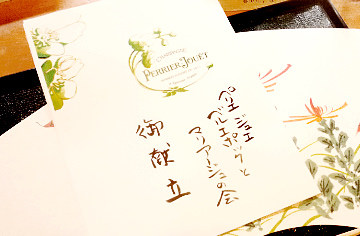 CHAMPAGNE
PERRIER-JOUËT
ペリエ ジュエ
ベルエポックと
マリアージュの会
御献立